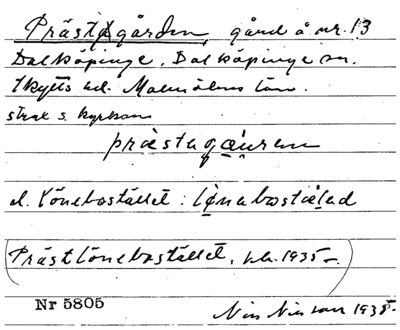 Prästgården, gård å nr. 13
Dalköpinge, Dalköpinge sn.
Skytts hd. Malmöhus län.
strax s. kyrkan
prästagæuren
el. Lönebostället: lønabostælad
(Prästlönebostället, bl. 1935-.)
Nr 5805
Nils Nilsson 1935.